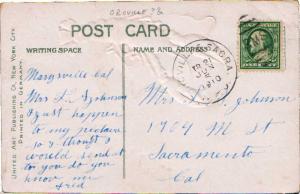 OROVILLE
POST CARD
WRITING SPACE
NAME AND ADDRESS
UNITED ART PUBLISHING CO. NEW YORK CITY.
PRINTED IN GERMANY.
Marysville Cal
Mrs L Johnson
I just happen
to my picture
so I thought I
would send it
to you do you
know me
Fred
Mrs L. Johnson
1704 M St
Sacramento
Cal
SACRA.
1910